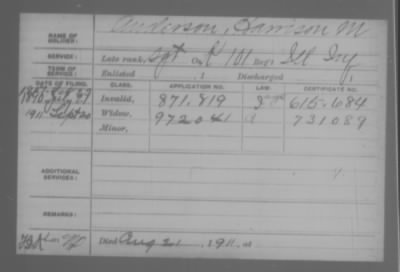 NAME OF SOLDIER: Anderson, Harrison M
SERVICE: Late rank, Sgt Co. K 101 Reg't Ill Inf
TERM OF SERVICE: Enlisted , 1 Discharged , 1
DATE OF FILING. CLASS. APPLICATION NO. LAW. CERTIFICATE NO.
Invalid, 871.819 615.684
1911 Sept 20 Widow, 972041 731089
Minor,
ADDITIONAL SERVICES:
REMARKS:
Died Aug 21, 1911, at